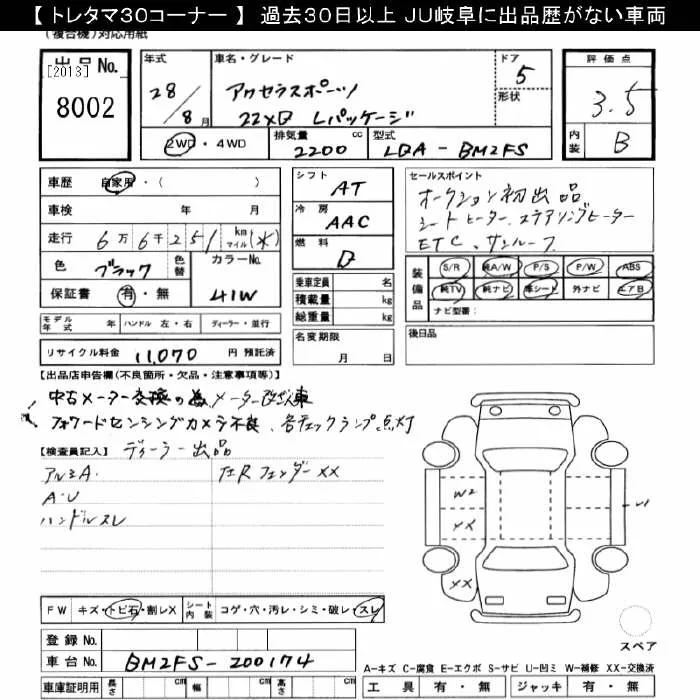 【トレタマ30コーナー】 過去30日以上 JU岐阜に出品歴がない車両
(複合機)対応用紙
出品No.
[2013]
8002
年式
28/8月
車名・グレード
アクセラスポーツ
22XD Lパッケージ
ドア
5
形状
評価点
3.5
内装
B
2WD・4WD
排気量
2200 cc
型式
LDA-BM2FS
車歴 自家用・( )
車検 年 月
走行 6万6千251 km マイル (*)
色 ブラック 色替
カラーNo. 41W
保証書 有・無
シフト AT
冷房 AAC
燃料 D
乗車定員 名
積載量 kg
総重量 kg
名変期限
月 日
セールスポイント
オークション初出品
シートヒーター、ステアリングヒーター
ETC、サンルーフ
装備品
S/R 純A/W P/S P/W ABS
純TV 純ナビ 革シート 外ナビ エアB
ナビ型番:
後日品
モデル年式 年 ハンドル 左・右 ディーラー・並行
リサイクル料金 11,070 円 預託済
【出品店申告欄(不良箇所・欠品・注意事項等)】
中古メーター交換の為メーター改ざん車
フォワードセンシングカメラ不良、各チェックランプ点灯
【検査員記入】 ディーラー出品
アルミA.
左RフェンダーXX
A・U
ハンドルスレ
W2
XX
XX
U
FW キズ・トビ石・割レX
シート内装 コゲ・穴・汚レ・シミ・破レ・スレ
登録No.
車台No. BM2FS-200174
車庫証明用 長さ cm 幅 cm 高さ cm
スペア
A-キズ C-腐食 E-エクボ S-サビ U-凹ミ W-補修 XX-交換済
工具 有・無 ジャッキ 有・無